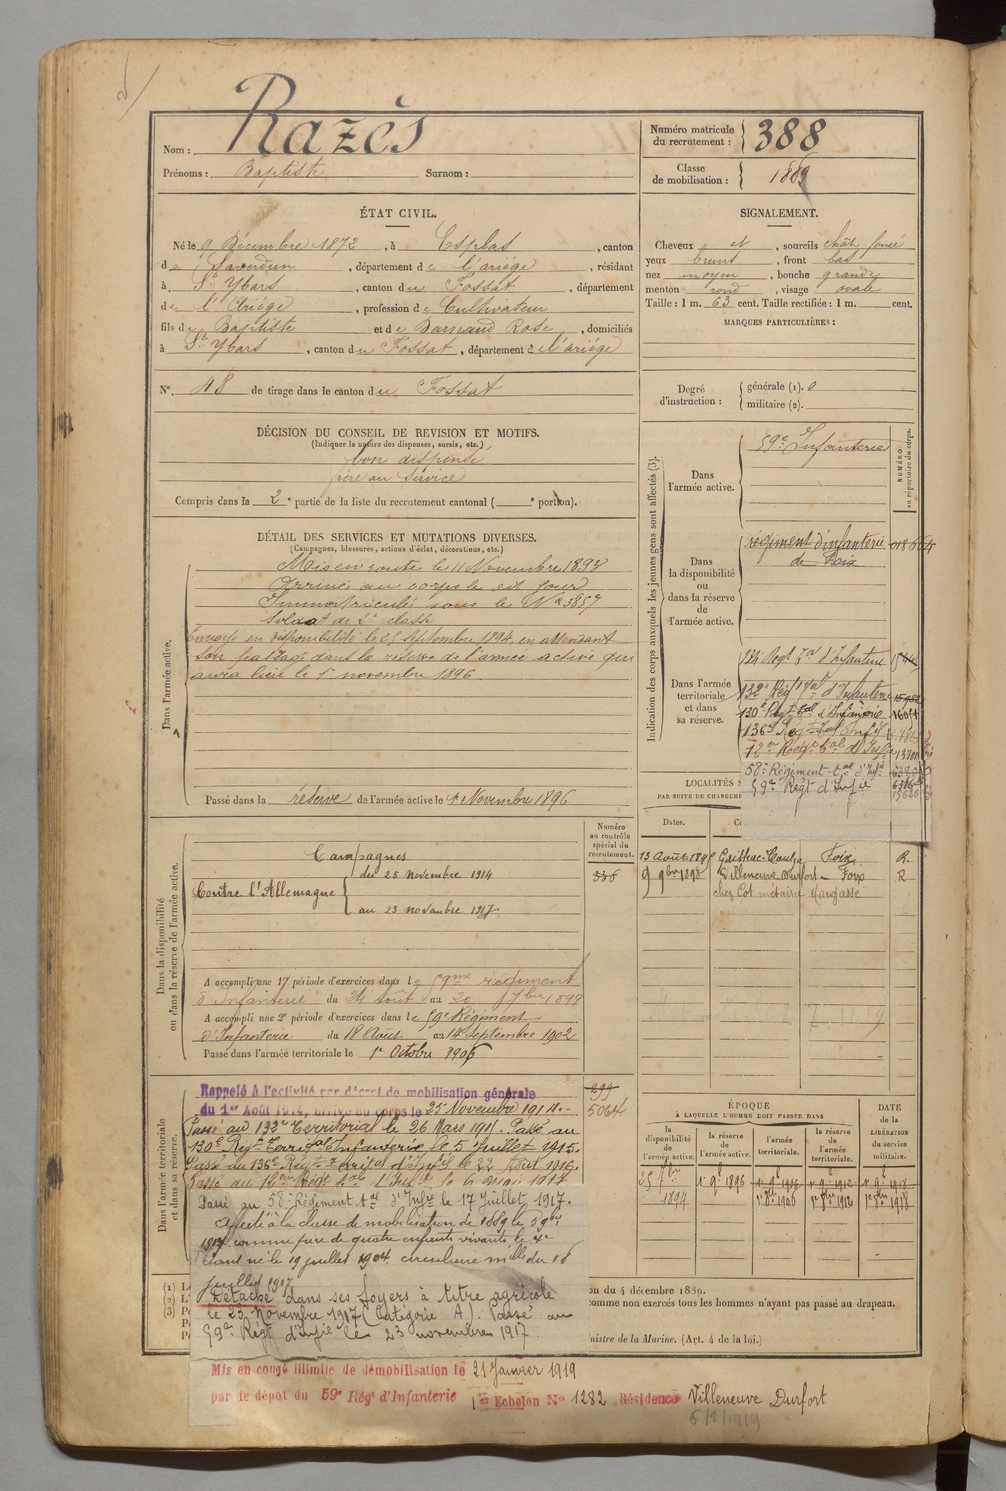 Nom : Razès
Prénoms : Baptiste Surnom :
Numéro matricule du recrutement : 388
Classe de mobilisation : 1889
ÉTAT CIVIL.
Né le 9 Décembre 1872, à Esplas, canton
de Saverdun, département de l'ariége, résidant
à St Ybars, canton du Fossat, département
de l'Ariége, profession de Cultivateur
fils de Baptiste et de Barnaud Rose, domiciliés
à St Ybars, canton du Fossat, département de l'ariége
No. 48 de tirage dans le canton du Fossat
SIGNALEMENT.
Cheveux et, sourcils chât. foncé
yeux bruns, front bas
nez moyen, bouche grande
menton rond, visage ovale
Taille : 1 m. 63 cent. Taille rectifiée : 1 m. cent.
MARQUES PARTICULIÈRES :
Degré d'instruction : générale (1). 0
militaire (2).
DÉCISION DU CONSEIL DE REVISION ET MOTIFS.
(Indiquer la nature des dispenses, sursis, etc.)
bon dispensé
frère au service
Compris dans la 2e partie de la liste du recrutement cantonal ( e portion).
DÉTAIL DES SERVICES ET MUTATIONS DIVERSES.
(Campagnes, blessures, actions d'éclat, décorations, etc.)
Dans l'armée active.
Mis en route le 11 Novembre 1893
Arrivé au corps le dit jour
Immatriculé sous le No 3857
Soldat de 2e classe
Envoyé en disponibilité le 25 Septembre 1894, en attendant
son passage dans la réserve de l'armée active qui
aura lieu le 1er novembre 1896.
Passé dans la réserve de l'armée active le 1er Novembre 1896
Indication des corps auxquels les jeunes gens sont affectés (3).
NUMÉRO au répertoire du corps.
Dans l'armée active.
59e Infanterie
Dans la disponibilité ou dans la réserve de l'armée active.
régiment d'infanterie
de Foix
Dans l'armée territoriale et dans sa réserve.
134 Regt Tal d'Infanterie
132e Regt Tal d'Infanterie
130e Regt Tal d'Infanterie
136e Reg Tal Infie
12e Regt Tal d'Infie
58e Régiment tal d'Infie
59e Regt d'Infie
LOCALITÉS
PAR SUITE DE CHANGEM
Dates.
13 Août 1895 Gaillac-Toulza Foix R.
9 9bre 1898 Villeneuve Durfort - Foix R
chez Cot métairie Margasse
Dans la disponibilité ou dans la réserve de l'armée active.
Numéro au contrôle spécial du recrutement.
336
Campagnes
Contre l'Allemagne
du 25 novembre 1914
au 23 novembre 1917
A accompli une 1e période d'exercices dans le 59me régiment
d'Infanterie du 24 août au 20 7bre 1899
A accompli une 2e période d'exercices dans le 59e Régiment
d'Infanterie du 18 Août au 14 Septembre 1902
Passé dans l'armée territoriale le 1er Octobre 1906
Dans l'armée territoriale et dans sa réserve.
299
5064
Rappelé à l'activité par décret de mobilisation générale
du 1er Août 1914, arrivé au corps le 25 Novembre 1914.-
Passé au 132e Territorial le 26 Mars 1915. Passé au
130e Regt Territal Infanterie le 5 Juillet 1915.
Passé au 136e Régt Territal d'Infie le 22 Août 1916.
Passé au 12e Regt Tal d'Infie le 6 mai 1917
Passé au 58e Régiment tal d'Infie le 17 Juillet 1917.
Affecté à la Classe de mobilisation de 1889 le 5 9bre
1917 comme père de quatre enfants vivants, le 4e
étant né le 19 juillet 1904. circulaire mlle du 16
juillet 1917
Détaché dans ses foyers à titre agricole
le 23 Novembre 1917 (Catégorie A). Passé au
59e Régt d'Infie le 23 novembre 1917.
ÉPOQUE
À LAQUELLE L'HOMME DOIT PASSER DANS
DATE de la LIBÉRATION du service militaire.
la disponibilité de l'armée active.
la réserve de l'armée active.
l'armée territoriale.
la réserve de l'armée territoriale.
25 7bre 1894
1er 9bre 1896
on du 4 décembre 1889.
comme non exercés tous les hommes n'ayant pas passé au drapeau.
nistre de la Marine. (Art. 4 de la loi.)
Mis en congé illimité de démobilisation le 21 Janvier 1919
par le dépôt du 59e Rég. d'Infanterie 1er Echelon No 1282 Résidence Villeneuve Durfort
5/2/1919